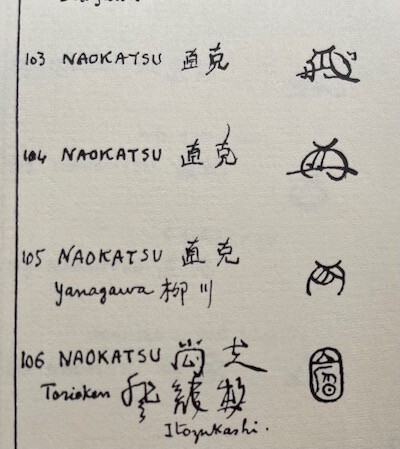 103 NAOKATSU 直克
104 NAOKATSU 直克
105 NAOKATSU 直克
Yanagawa 柳川
106 NAOKATSU
Torioken
Itozukashi.